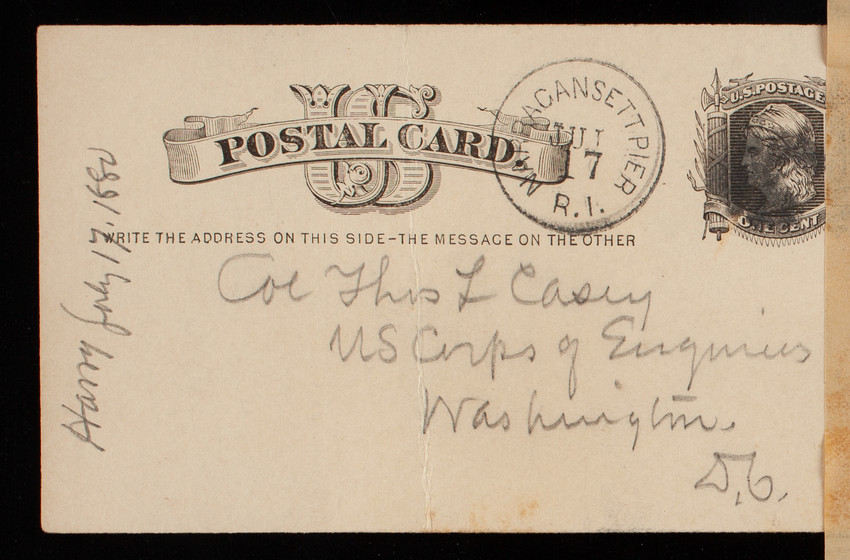 US
POSTAL CARD
NARRAGANSETT PIER
JUL
17
R.I.
U.S. POSTAGE
ONE CENT
WRITE THE ADDRESS ON THIS SIDE-THE MESSAGE ON THE OTHER
Col Thos L Casey
US Corps of Engineers
Washington.
D.C.
Harry July 17, 1882